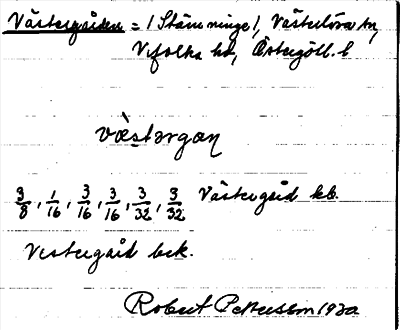 Västergården = (Stämminge), Västerlösa sn,
Vifolka hd, Östergötl. l
væ̀stərgαn
3/8, 1/16, 3/16, 3/16, 3/32, 3/32 Västergård kb.
Vestergård bek.
Robert Pettersson 1930